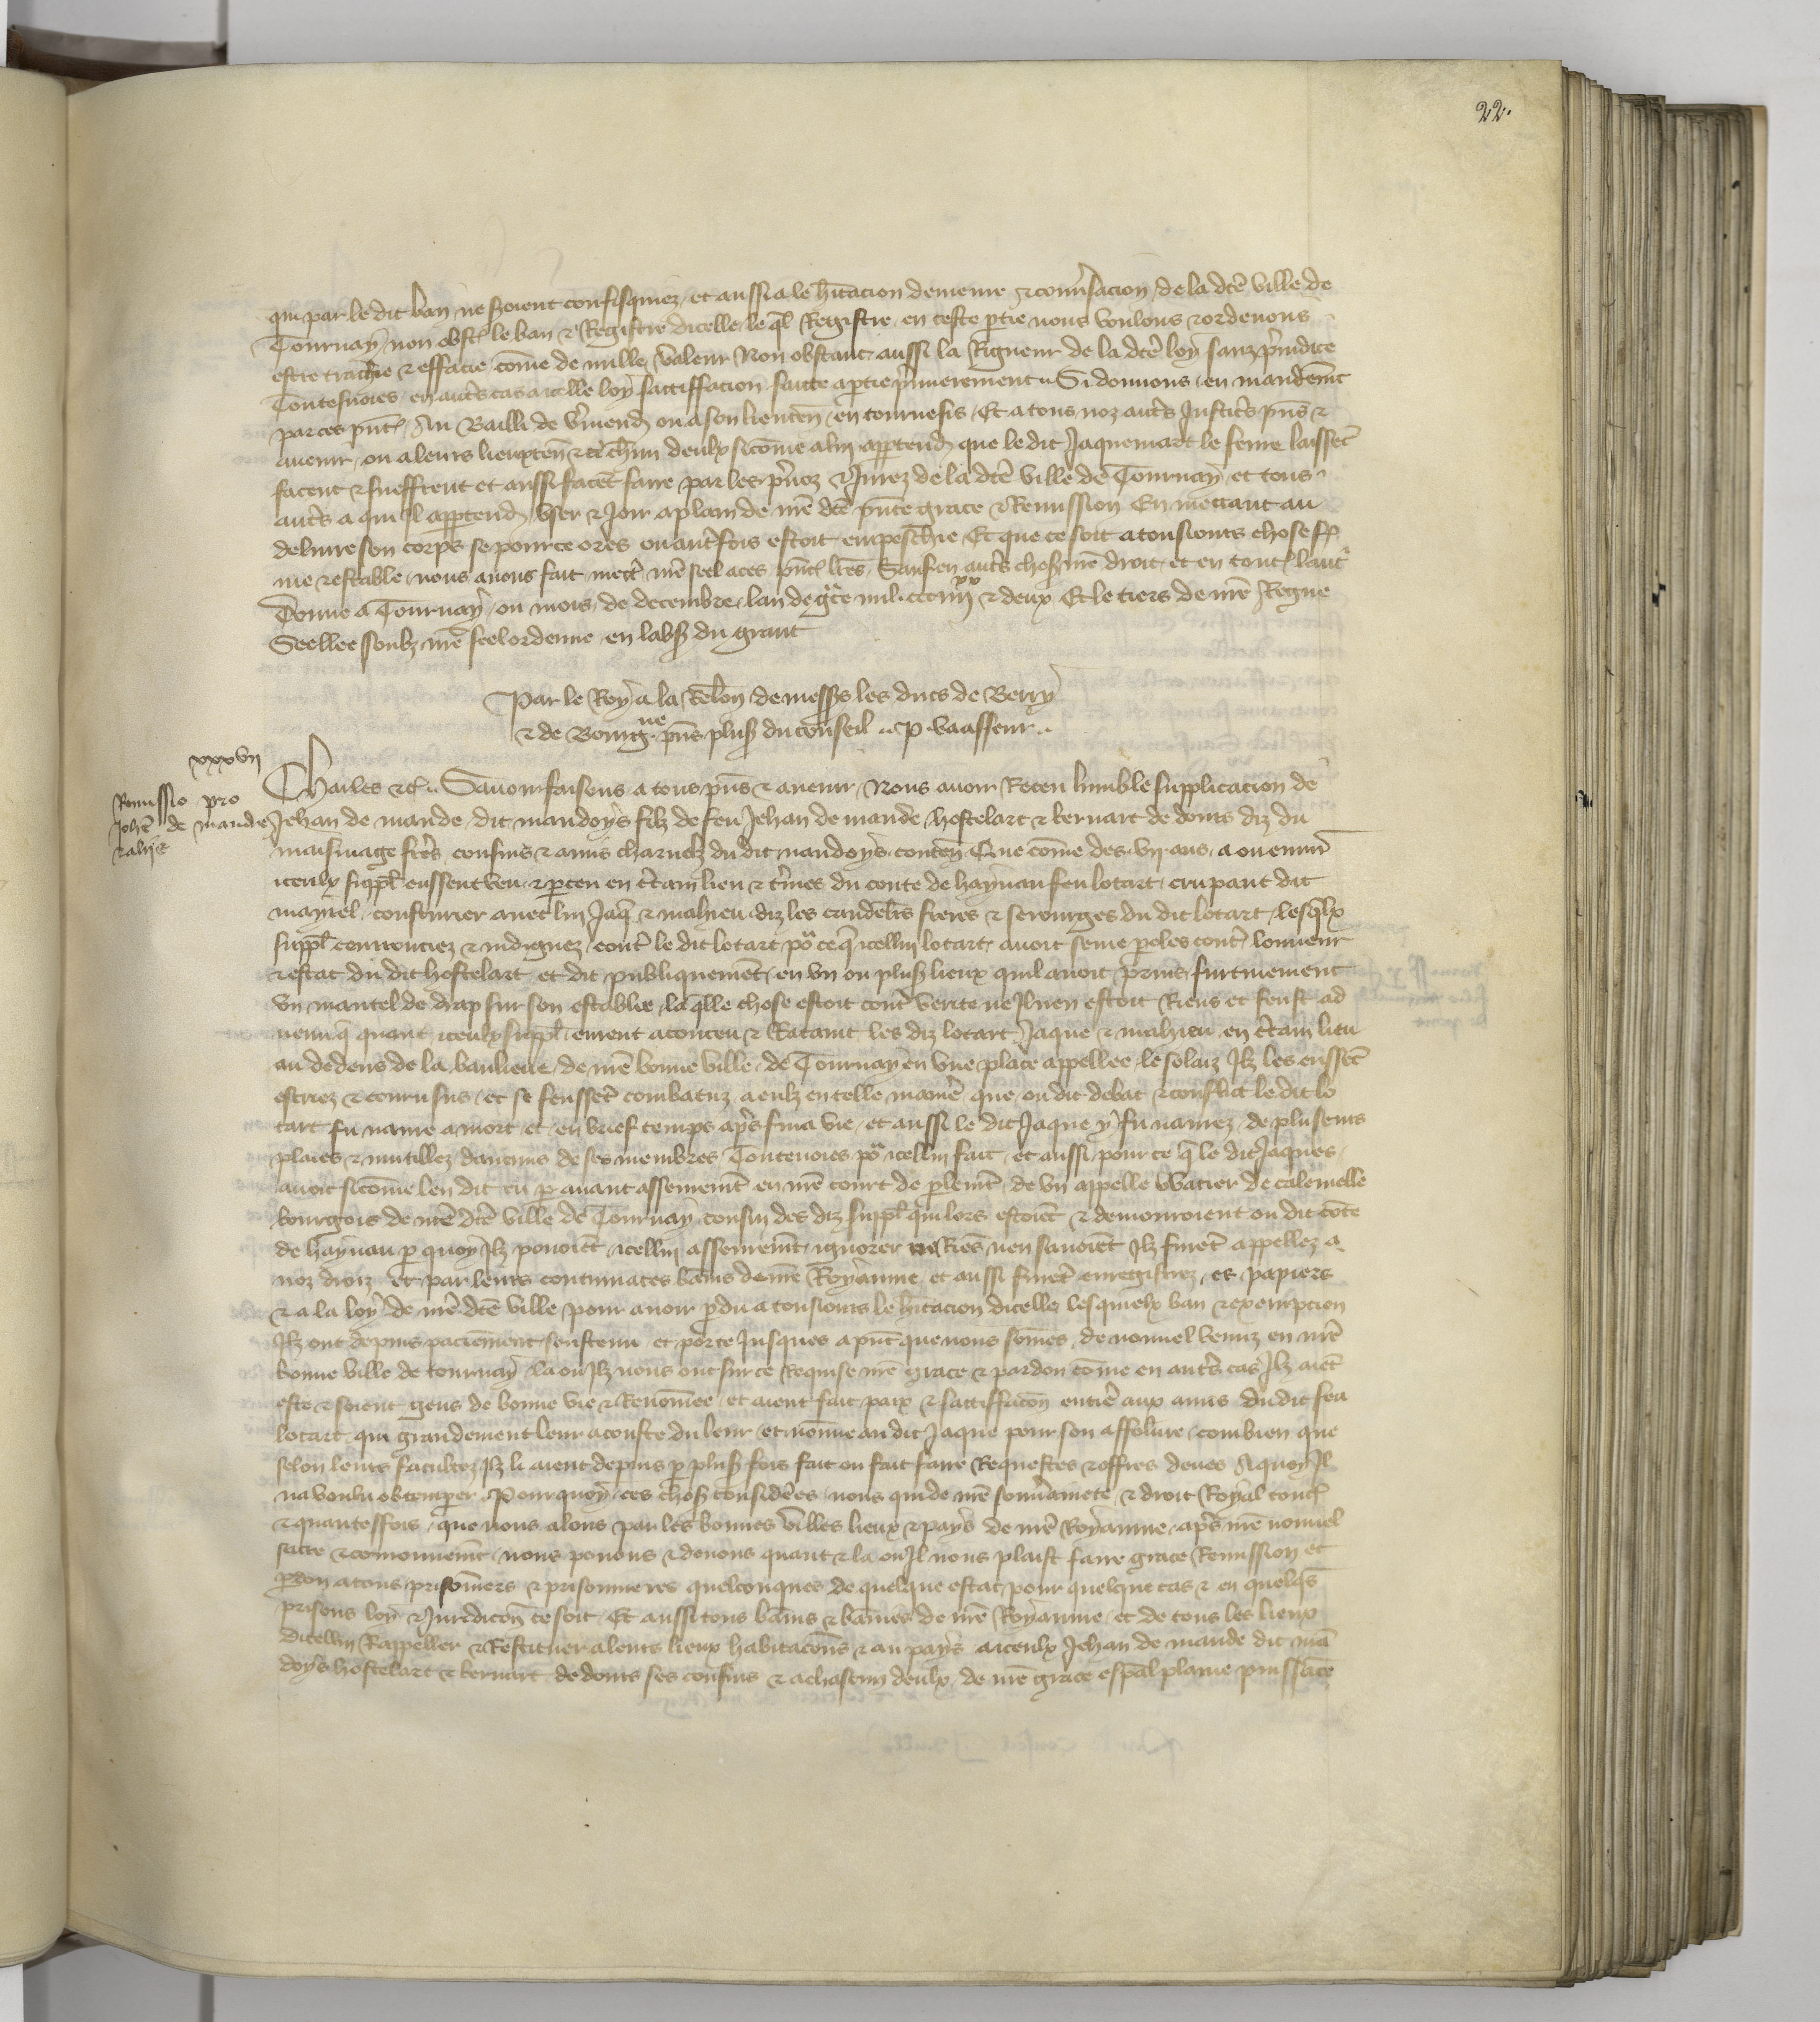 22.
qui par le dit ban ne soient confisquiez, et aussi a le h̃itacion demeure et conv̾sacion, de la dc̄e ville de
Tournay non obst̃ le ban et Registre dicelle, le ql̃ Registre, en ceste p̱tie nous voulons et ordenons
estre trachie et effacie, com̄e de nulle valeur Non obstant, aussi la Rigueur de la dc̄e loy, sanz p̾iudice
Toutesuoies, en aut̾s cas a icelle loy, satiffacion faicte a p̱tie p̾mierement. Si donnons, en mandem̃t
par ces pn̄t̃, Au Bailli de v̾mend̃ ou a son lieuten̄ en tournesis, Et a tous noz aut̾s Justic̾s pn̄s et
auenir, ou a leurs lieuxten̄ et a ch̃un deulx sicom̄e a lui ap̱tend̃ que le dit Jaquemart le feure laissēt
facent et sueffrent et aussi facēt faire par les p̾uoz et Jurez de la dc̄e ville de Tournay, et tous
aut̾s a qui Il ap̱tend̃, vser et Joir a plain de nr̄e dc̄e pn̄te grace et Remission En mectant au
deliure son corps se pour ce ores ou aut̾fois estoit empeschie, Et que ce soit a tousiours chose fer
me et estable, nous auons fait mectr̾ nr̄e seel a ces pn̄t̃ lr̄es, Sauf en aut̾s chos̃ nr̄e droit, et en tout̃ laut̾
Donne a Tournay, ou mois de decembre, lan de gr̾ce mil ccc iiij xx et deux Et le tiers de nr̄e Regne
Seellee soubz nr̄e seel ordenne en labs̃ du grant
Par le Roy a la rel̃on de mess̃s les ducs de Berry
et de Bourg ne. pn̄s plus̃ du conseil .. P. vaasseur ..
xxxvii
Remissio pro
Joh̃e de mande
et alijs
Charles etc̃.. Sauoir faisons, a tous pn̄s et auenir, Nous auoir Receu lumble supplicacion de
Jehan de mande, dit mandoys filz de feu Jehan de mande, hostelart et bernart de dours diz du
maisnage fr̾es, cousins et amis charnelz du dit mandoys, conten̄ Que com̄e des .vij. ans, a ou enuir̄
iceulx suppl̃ eussent veu, et p̱ceu en c̾tain lieu et t̾mes du conte de haynau feu lotart, crupant dit
mayrel, cousturier auec lui Jaq̃ et mahieu diz les candel̃rs freres et serourges du dit lotart, lesq̃lx
suppl̃ courrouciez et indignez, cont̾ le dit lotart, po͛ ce q̃ icellui lotart, auoit seme p̱oles cont̾ lonneur
et estat du dit hostelart et dit publiquemēt, en vn ou plus̃ lieux quil auoit prins furtiuement
vn mantel de drap sur son establie, laq̃lle chose estoit cont̾ verite ne Il nen estoit Riens et feust ad
uenu q̃ quant iceulx suppl̃, eurent aconceu et Rataint les diz lotart, Jaque et mahieu, en c̾tain lieu
au dedens de la banlieue, de nr̄e bonne ville, de Tournay en vne place appellee, le solaiz Ilz les eussēt
escriez et couru sus, et se feussēt combatuz, a eulz en telle manie̾ que, ou dit debat et conflict le dit lo
tart fu naure a mort et en brief temps ap̾s fina vie, et aussi le dit Jaque y fu naurez de pluseurs
plaies et mutillez daucuns de ses membres Toutesuoies po͛ icellui fait, et aussi pour ce q̃ le dit Jaques
auoit sicom̄e len dit eu p̱ auant assurem̃t en nr̄e court de p̱lem̃t, de vn appelle Watier de calenelle
bourgois de nr̄e dc̄e ville de Tournay cousin des diz suppl̃ qui lors estoiēt et demouroient ou dit cōte
de haynau p̱ quoy Ilz pouoiēt icellui asseurem̃t, ignorer ne Riēs nen sauoiēt Ilz furēt appellez a
noz droiz et par leurs contumaces bānis de nr̄e Royaume, et aussi furēt enregistrez, es papiers
et a la loy de nr̄e dc̄e ville, pour auoir p̱du a tousiours le h̃itacion dicelle, lesquielx ban et exempcion
Ilz ont depuis paciēment soustenu et porte Jusques a pn̄t que nous som̄es, de nouuel venuz en nr̄e
bonne ville de tournay, la ou Ilz nous ont sur ce Requise nr̄e grace et pardon com̄e en aut̾s cas Ilz aiēt
este et soient gens de bonne vie et Renom̄ee, et aient fait paix et satiffac̄on entie̾ aux amis du dit feu
lotart, qui grandement leur a couste du leur et nōnne au dit Jaque pour son affol̾ure, combien que
selon leurs facultez, Ilz li aient depuis p̱ plus̃ fois fait ou fait faire Requestes et offres deues A quoy Il
na voulu obtemperer, Pourquoy, ces chos̃ consider̾es nous qui de nr̄e souu̾ainete et droit Royal tout̃
et quantesfois, que nous alons par les bonnes villes lieux et pays de nr̄e Royaume, ap̾s nr̄e nouuel
sacre et coronnem̃t, nous pouons et deuons quant et la ou Il nous plaist faire grace Remission et
p̱don a tous prisonniers et prisonnieres quelconques de quelque estat, pour quelque cas et en quelq̃s
prisons loy et Juridic̄on ce soit, Et aussi tous bānis et bānies de nr̄e Royaume, et de tous les lieux
dicellui Rappeller et Restituer a leurs lieux habitac̄ons et au pays a iceulx Jehan de mande dit mā
doys hostelart et bernart de dours ses cousins et a chascun deulx, de nr̄e grace esp̃al plaine puissāce